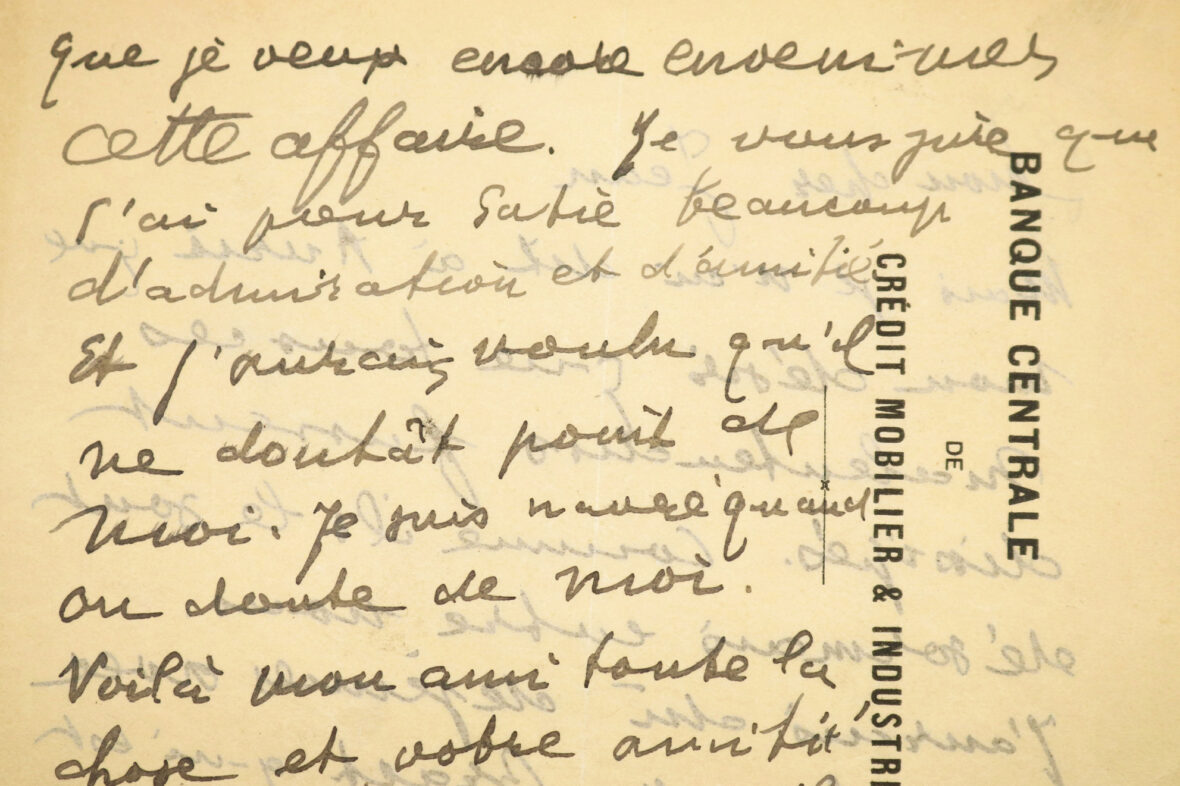 que je veux encore envenimer
cette affaire. Je vous jure que
j'ai pour Satie beaucoup
d'admiration et d'amitié
Et j'aurais voulu qu'il
ne doutât point de
moi. Je suis navré quand
on doute de moi.
Voilà mon ami toute la
chose et votre amitié
BANQUE CENTRALE
DE
CRÉDIT MOBILIER & INDUSTRI